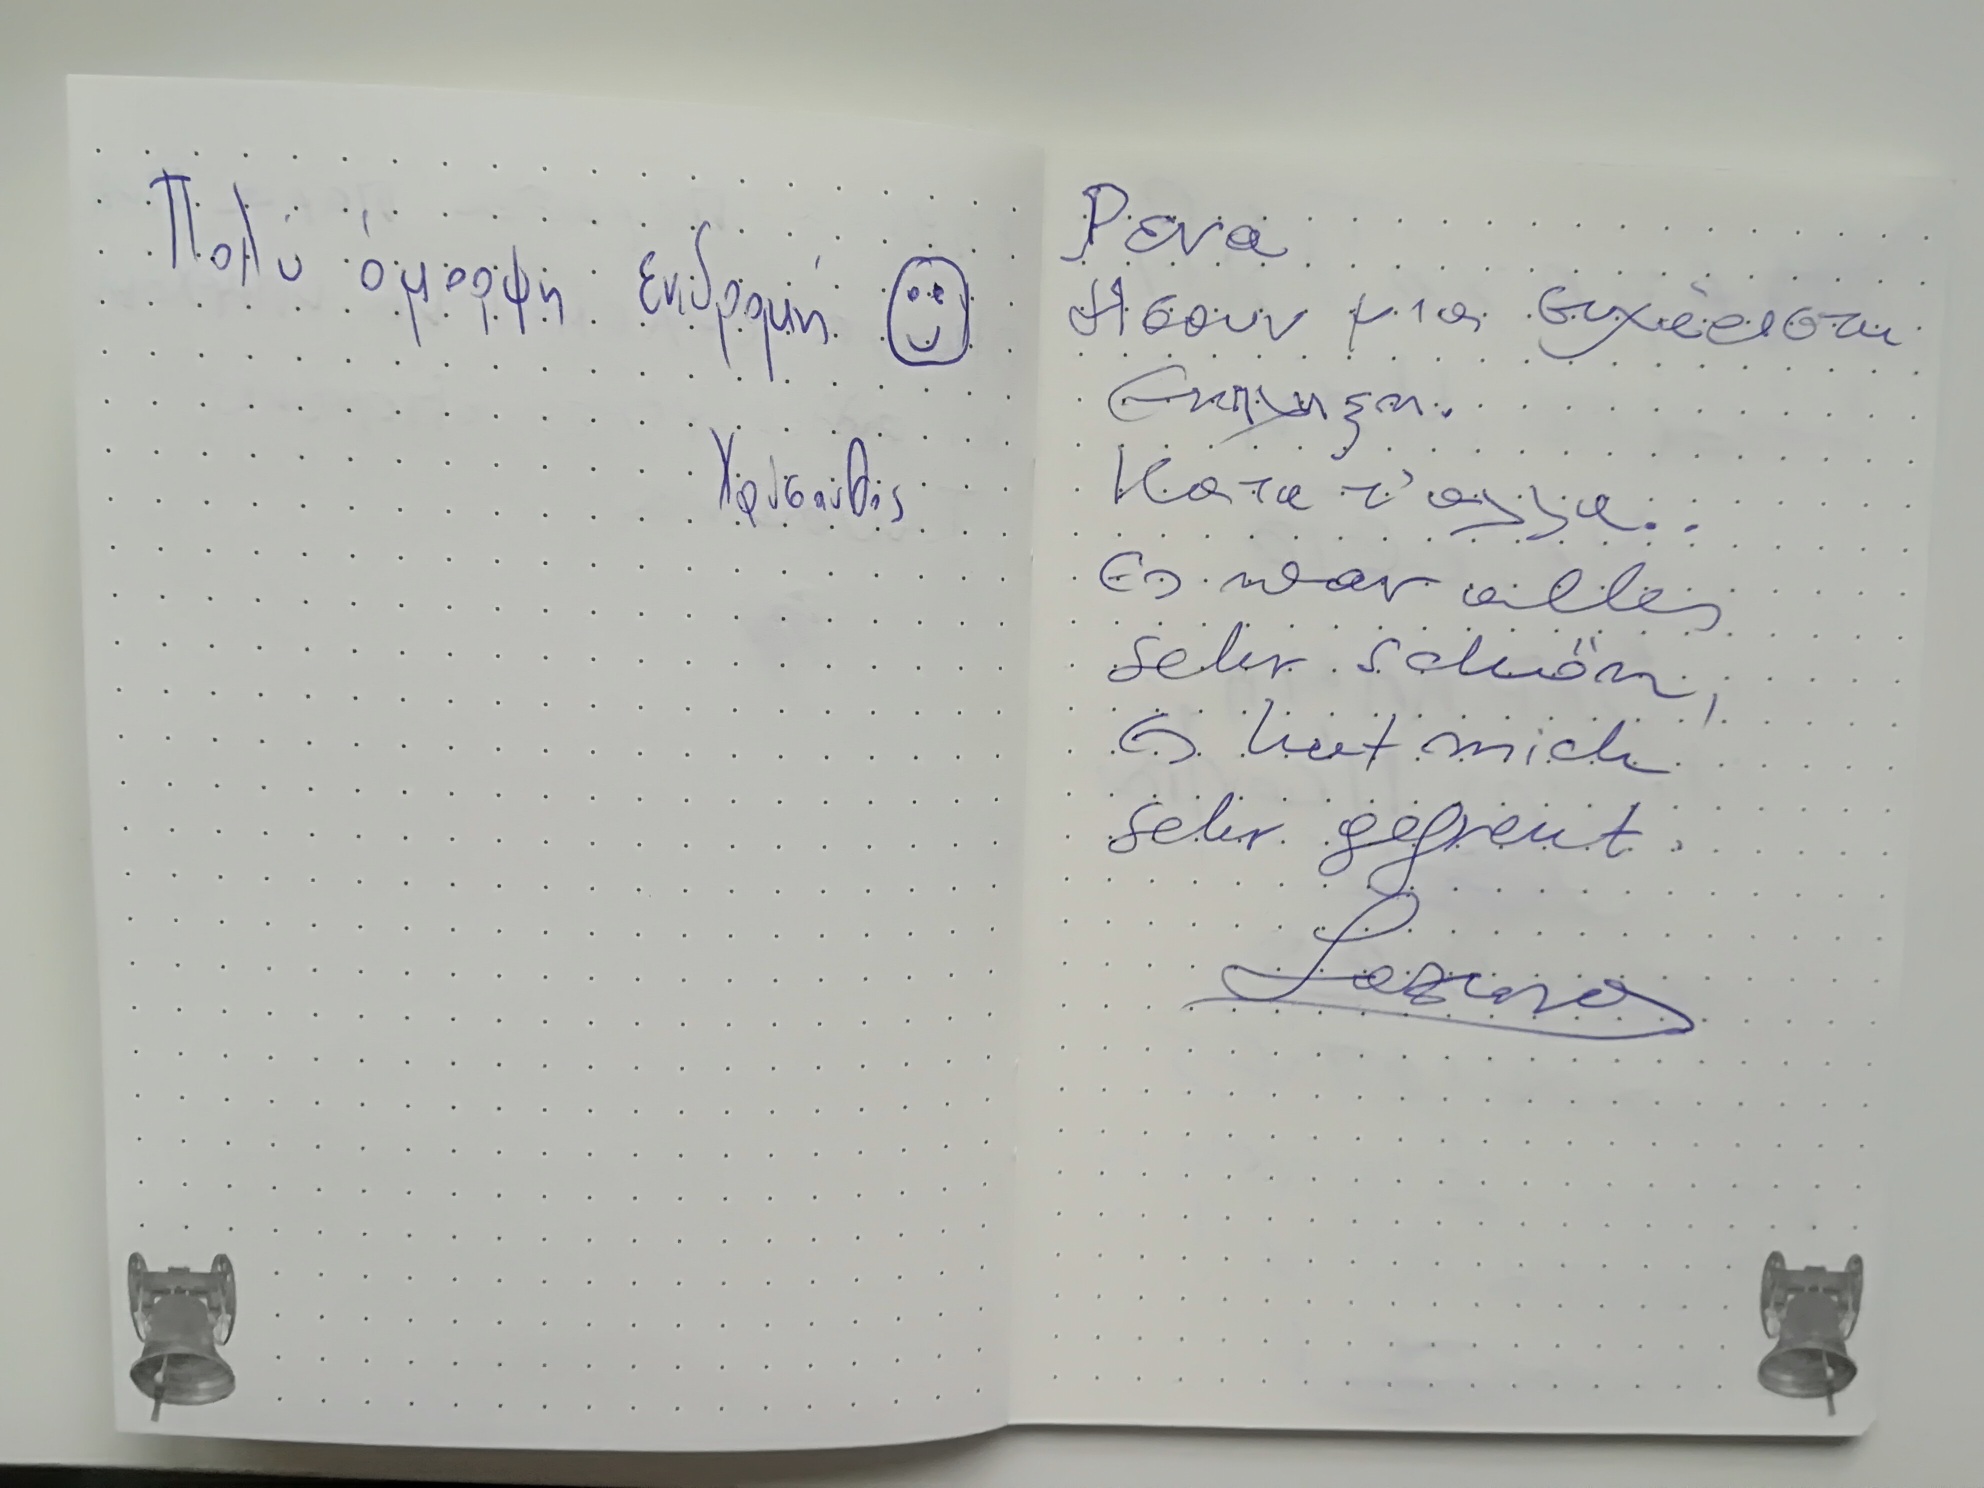 Πολύ όμορφη εκδρομή
Χρύσανθος
Ρενα
Ησουν μια ευχάριστη
Εκπληξη.
Κατα τ'αλλα..
Es war alles
sehr schön,
Es hat mich
sehr gefreut.